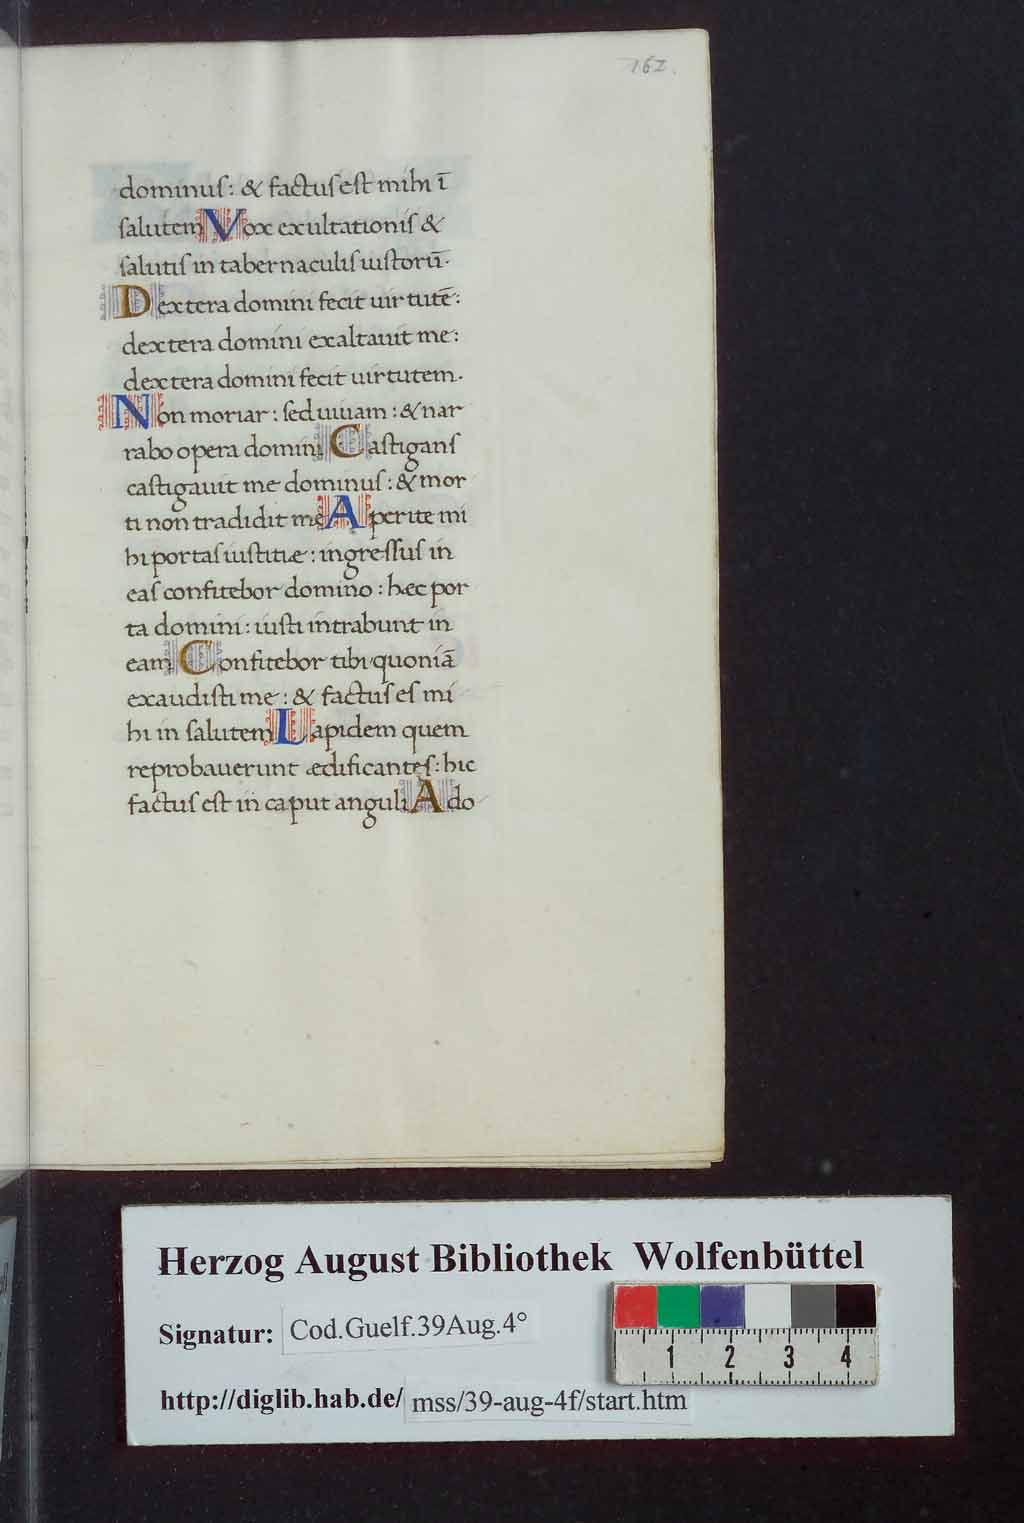 162.
dominuſ: & factuſ eſt mihi ī
ſalutem Vox exultationiſ &
ſalutiſ in tabernaculiſ iuſtorū.
Dextera domini fecit uirtutē:
dextera domini exaltauit me:
dextera domini fecit uirtutem.
Non moriar: ſed uiuam: & nar
rabo opera domini Caſtiganſ
caſtigauit me dominuſ: & mor
ti non tradidit me Aperite mi
hi portaſ iuſtitiæ: ingreſſuſ in
eaſ confitebor domino: hæc por
ta domini: iuſti intrabunt in
eam Confitebor tibi quoniā
exaudiſti me: & factuſ eſ mi
hi in ſalutem Lapidem quem
reprobauerunt ædificanteſ: hic
factuſ eſt in caput anguli A do
Herzog August Bibliothek Wolfenbüttel
Signatur: Cod.Guelf.39Aug.4°
1 2 3 4
http://diglib.hab.de/ mss/39-aug-4f/start.htm